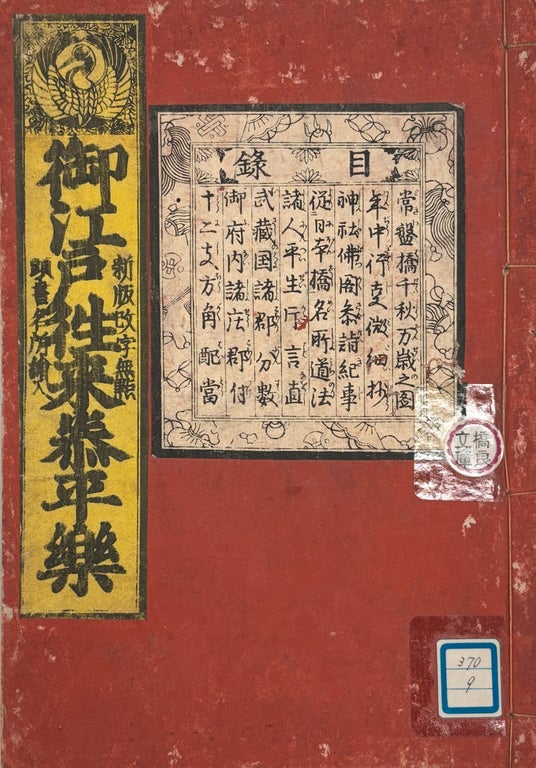 御江戸往来泰平樂
新版改字無點
目錄
常盤橋千秋万歳之図
年中行事微細抄
神社佛閣参詣紀事
従日本橋名所道法
諸人平生片言直
武蔵国諸郡分数
御府内諸法郡付
十二支方角配當
文庫
370
9